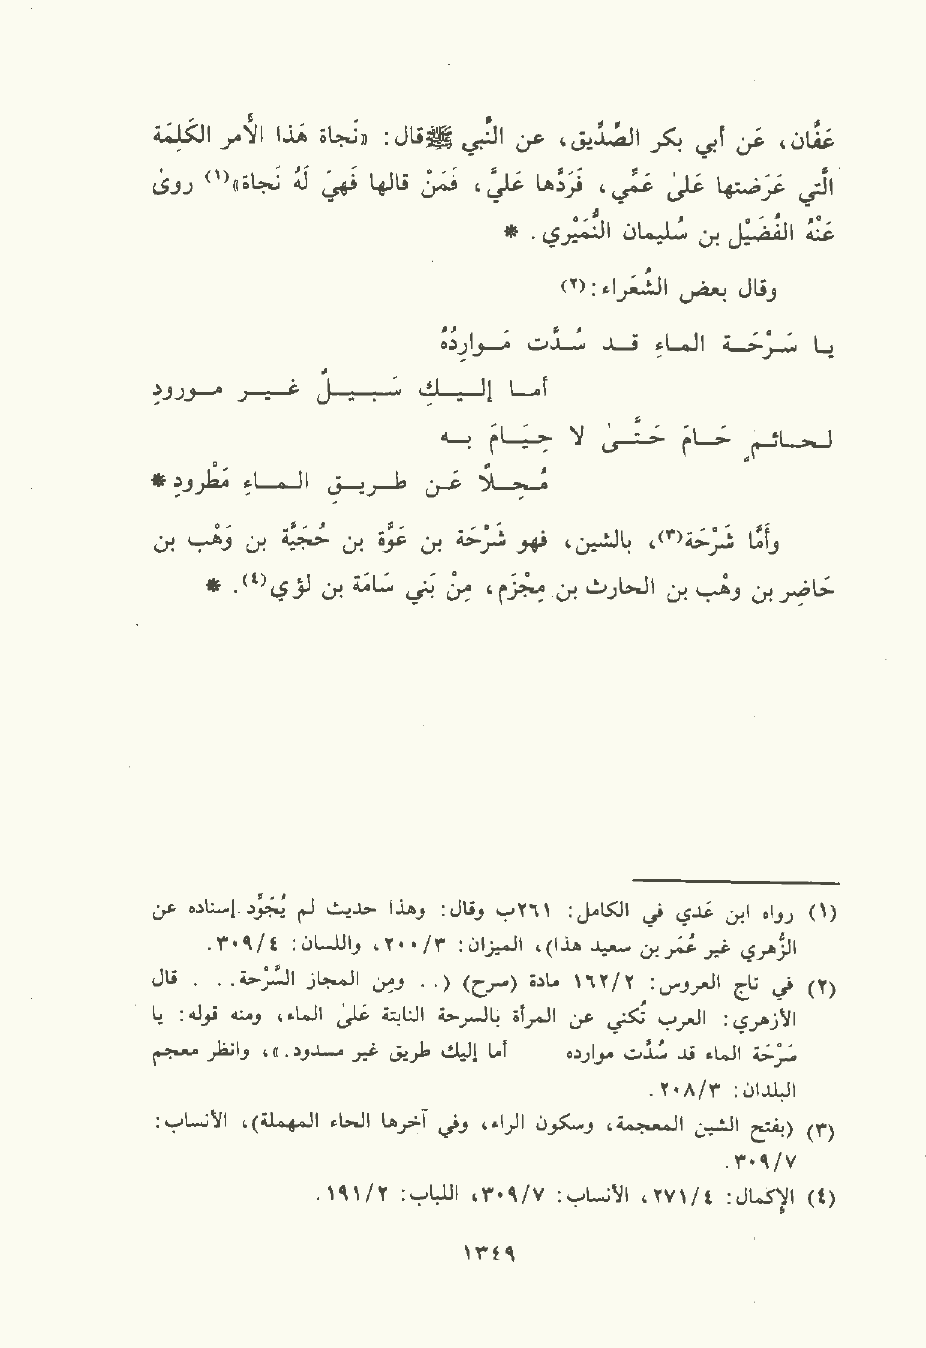 عَفَّان، عَن أبي بكر الصِّدّيق، عن النَّبي ﷺقال: «نَجاة هَذا الأَمر الكَلِمَة
الَّتي عَرَضتها عَلىٰ عَمّي، فَرَدَّها عَليّ، فَمَن قالها فَهيَ لَهُ نَجاة»(١) رَوىٰ
عَنْهُ الفُضَيْل بن سُليمان النُّمَيْري . *
وقال بعض الشُّعَراء:(٢)
يـا سَـرْحَـة المـاءِ قـد سُـدَّت مَـوارِدُهُ
أمـا إلـيـكِ سَـبـيـلٌ غـيـر مـورودِ
لـحـائـمٍ حَـامَ حَـتَّـىٰ لا حِـيَـامَ بـه
مُـحِـلَّاً عَـن طـريـقِ المـاءِ مَطْرودِ *
وأَمَّا شَرْحَة(٣)، بالشين، فهو شَرْحَة بن عَوَّة بن حُجَيَّة بن وَهْب بن
حَاضِر بن وهْب بن الحارث بن مِجْزَم، مِن بَني سَامَة بن لؤي(٤). *
(١) رواه ابن عَدي في الكامل: ٢٦١ب وقال: وهذا حديث لم يُجَوِّد إسناده عن
الزُّهري غير عُمَر بن سعيد هذا)، الميزان: ٢٠٠/٣، واللسان: ٣٠٩/٤.
(٢) في تاج العروس: ١٦٢/٢ مادة (سرح) (.. ومِن المجاز السَّرْحَة.. . قال
الأزهري: العرب تُكني عن المرأة بالسرحة النابتة علىٰ الماء، ومنه قوله: يا
سَرْحَة الماء قد سُدَّت موارده أما إليك طريق غير مسدود.»، وانظر معجم
البلدان: ٢٠٨/٣.
(٣) (بفتح الشين المعجمة، وسكون الراء، وفي آخرها الحاء المهملة)، الأنساب:
٣٠٩/٧.
(٤) الإكمال: ٢٧١/٤، الأنساب: ٣٠٩/٧، اللباب: ١٩١/٢.
١٣٤٩